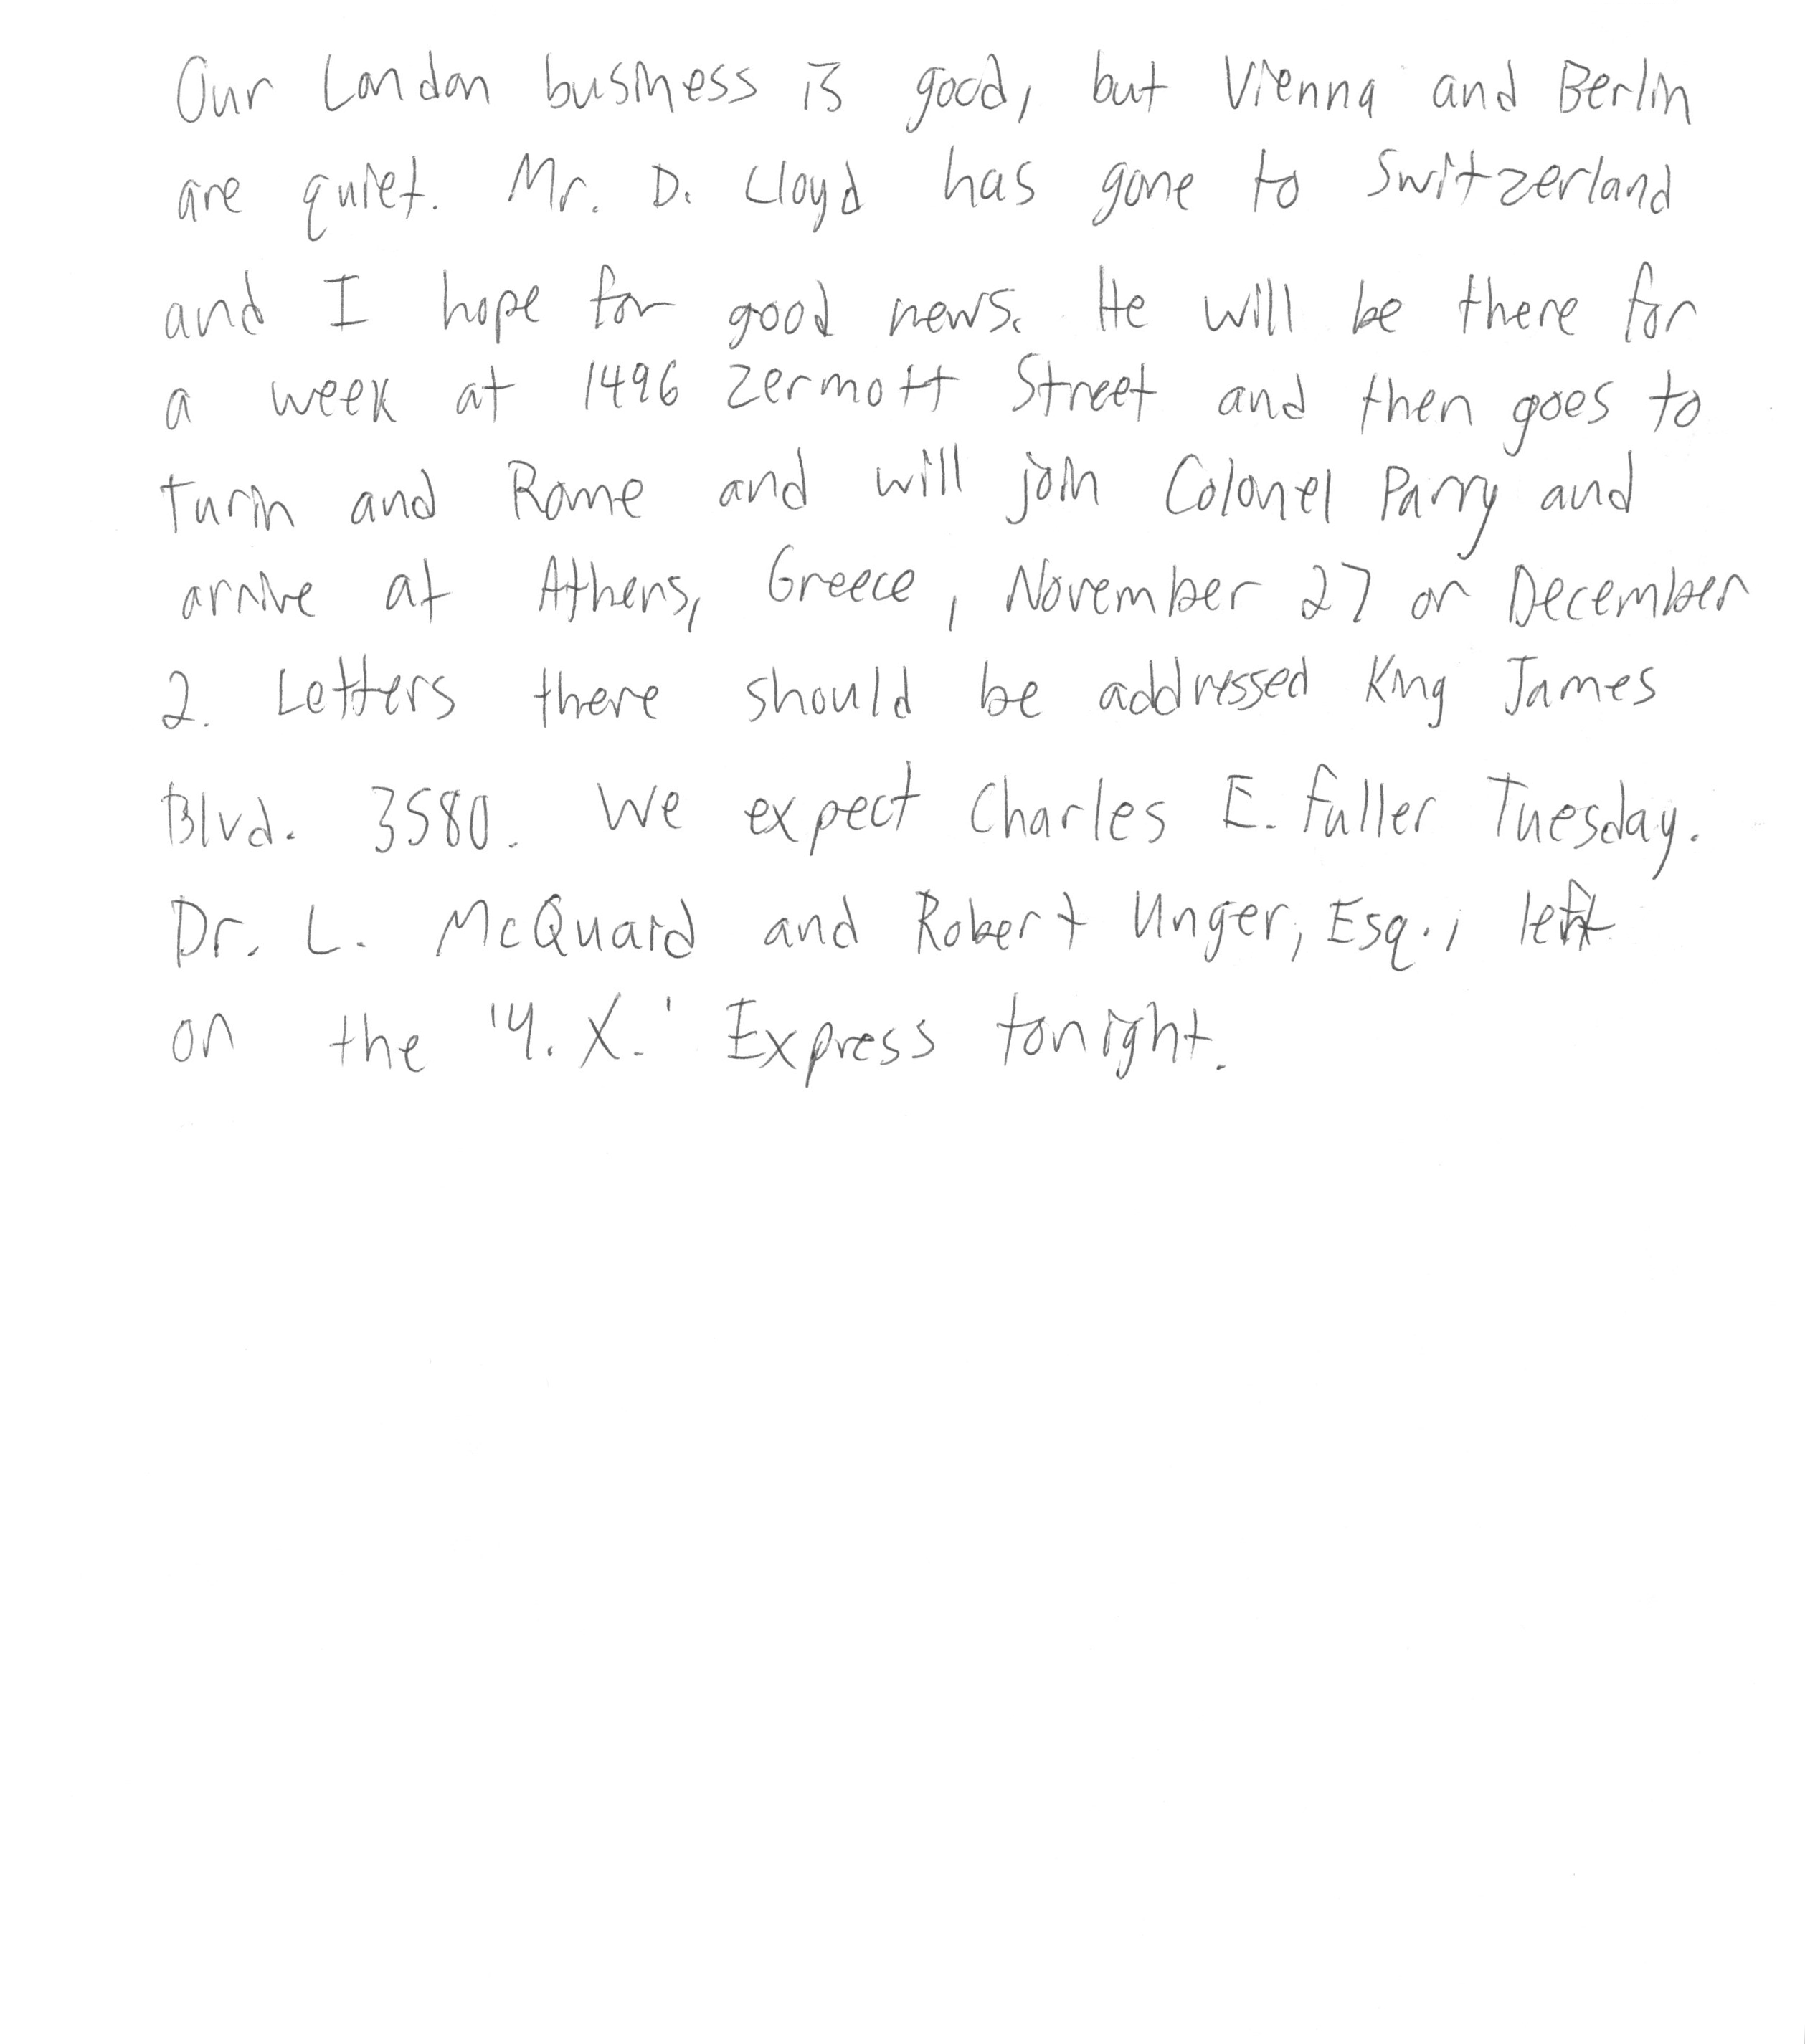 Our London business is good, but Vienna and Berlin
are quiet. Mr. D. Lloyd has gone to Switzerland
and I hope for good news. He will be there for
a week at 1496 Zermott Street and then goes to
Turin and Rome and will join Colonel Parry and
arrive at Athens, Greece, November 27 or December
2. Letters there should be addressed King James
Blvd. 3580. We expect Charles E. Fuller Tuesday.
Dr. L. McQuaid and Robert Unger, Esq., left
on the 'Y. X.' Express tonight.